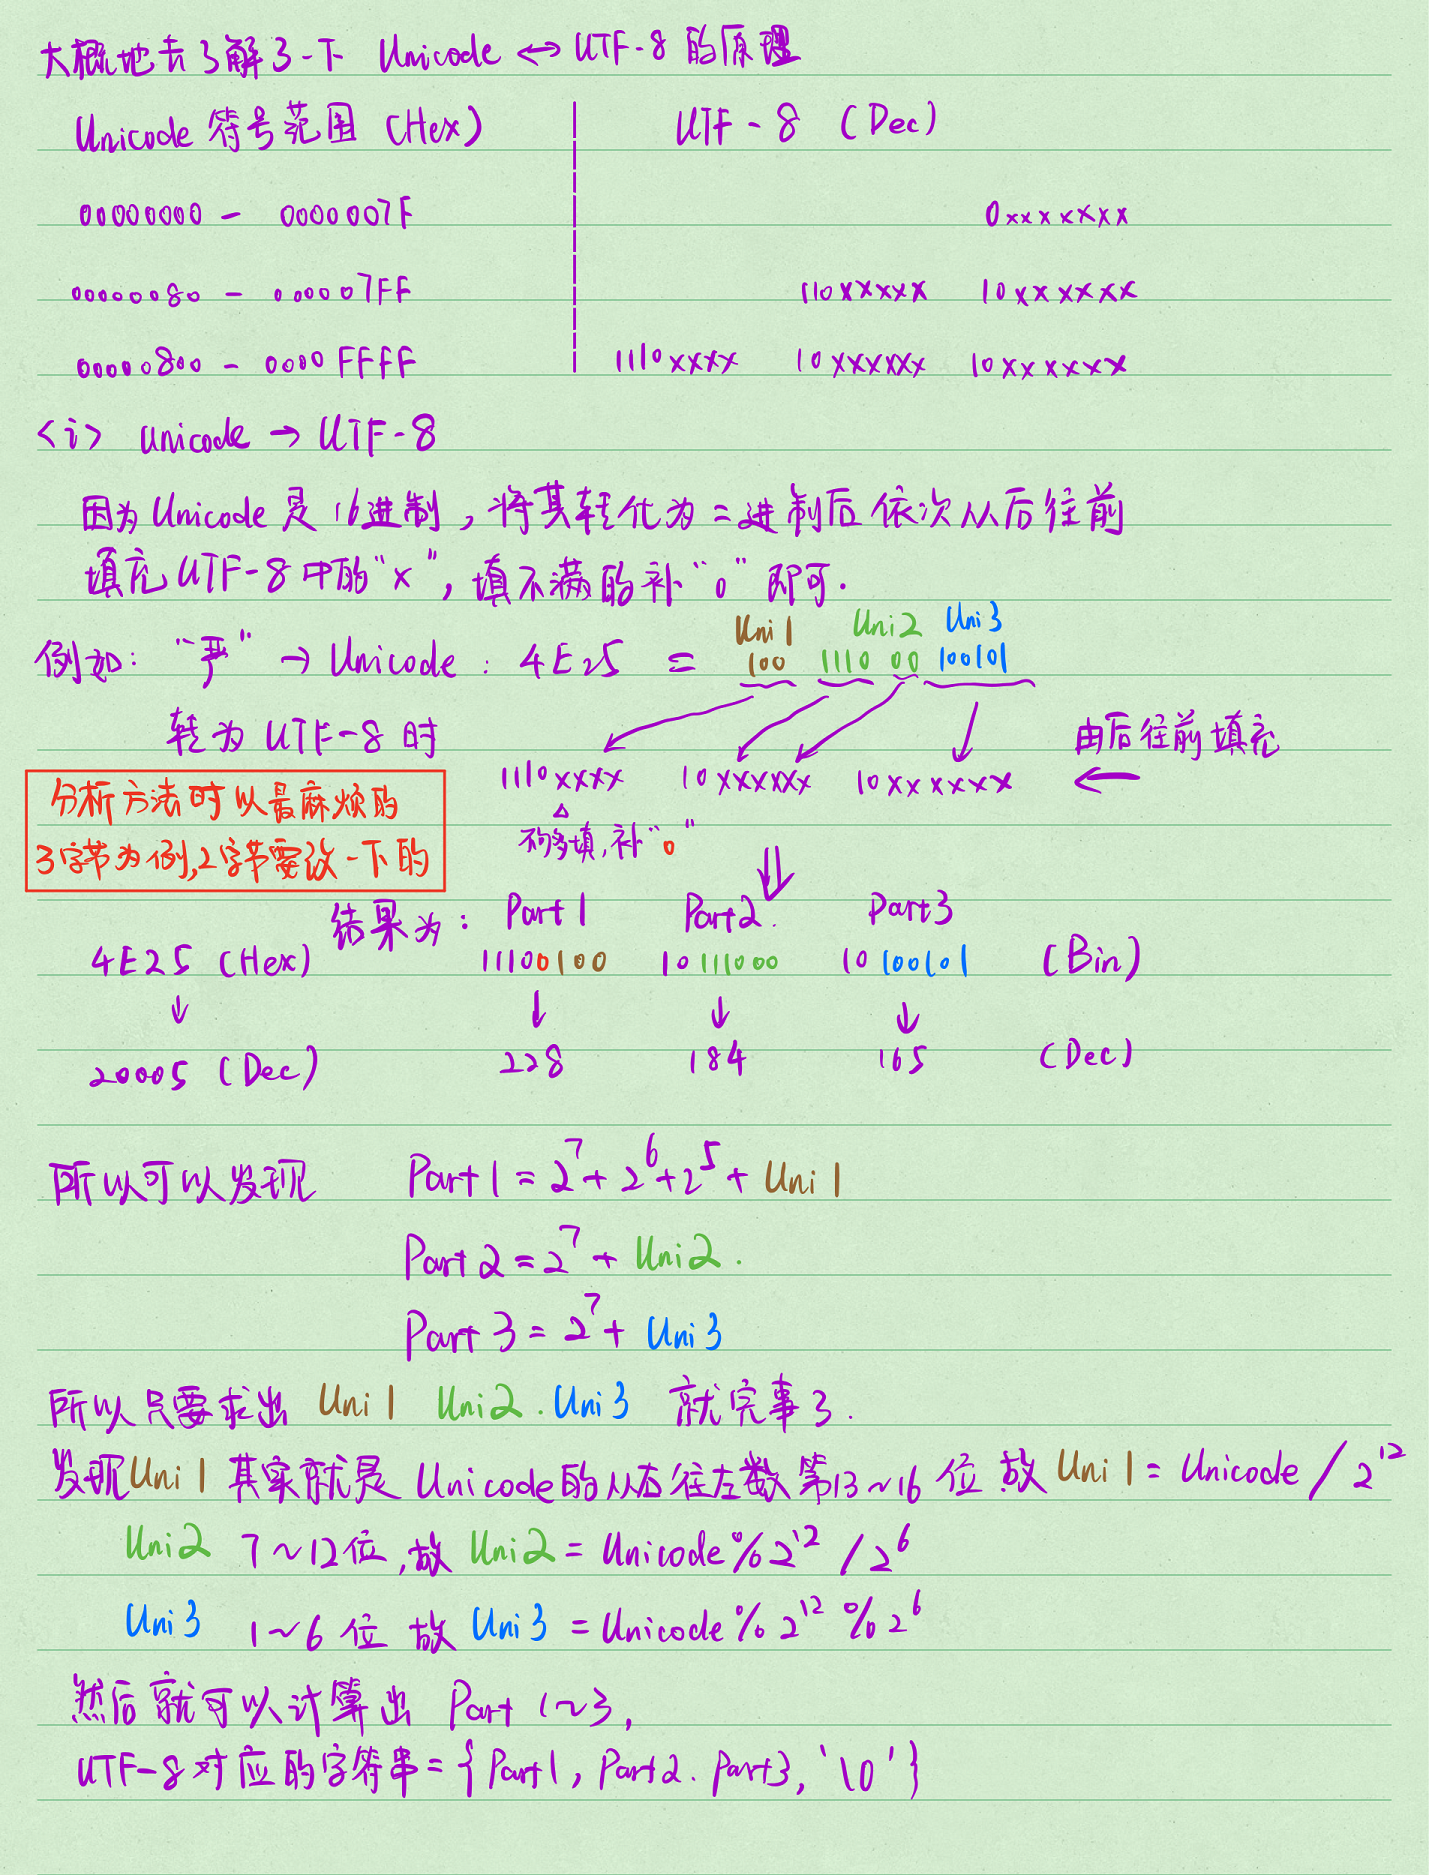 大概地去了解了一下 Unicode ↔ UTF-8 的原理
Unicode 符号范围 (Hex) UTF-8 (Dec)
00000000 - 0000007F 0xxxxxxx
00000080 - 000007FF 110xxxxx 10xxxxxx
00000800 - 0000FFFF 1110xxxx 10xxxxxx 10xxxxxx
<i> unicode → UTF-8
因为Unicode是16进制,将其转化为二进制后依次从后往前
填充UTF-8中的"x",填不满的补"0"即可.
Uni1 Uni2 Uni3
例如: "严" → Unicode: 4E25 = 100 1110 00 100101
转为 UTF-8 时 由后往前填充
1110xxxx 10xxxxxx 10xxxxxx ←
分析方法时以最麻烦的
3字节为例,2字节要改一下的
不够填,补"0"
结果为: Part1 Part2. Part3
4E25 (Hex) 11100100 10111000 10100101 (Bin)
↓ ↓ ↓ ↓
20005 (Dec) 228 184 165 (Dec)
所以可以发现 Part1 = 2⁷+2⁶+2⁵+Uni1
Part2 = 2⁷+Uni2.
Part3 = 2⁷+Uni3
所以只要求出 Uni1 Uni2. Uni3 就完事了.
发现Uni1 其实就是 Unicode的从右往左数第13~16位 故 Uni1 = Unicode / 2¹²
Uni2 7~12位,故 Uni2 = Unicode % 2¹² / 2⁶
Uni3 1~6位 故 Uni3 = Unicode % 2¹² % 2⁶
然后就可以计算出 Part 1~3,
UTF-8对应的字符串={Part1, Part2. Part3, '\0'}